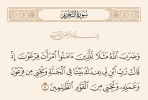 سورة التحريم
وَضَرَبَ ٱللَّهُ مَثَلًا لِّلَّذِينَ ءَامَنُوا۟ ٱمْرَأَتَ فِرْعَوْنَ إِذْ
قَالَتْ رَبِّ ٱبْنِ لِى عِندَكَ بَيْتًا فِى ٱلْجَنَّةِ وَنَجِّنِى مِن فِرْعَوْنَ
وَعَمَلِهِۦ وَنَجِّنِى مِنَ ٱلْقَوْمِ ٱلظَّٰلِمِينَ